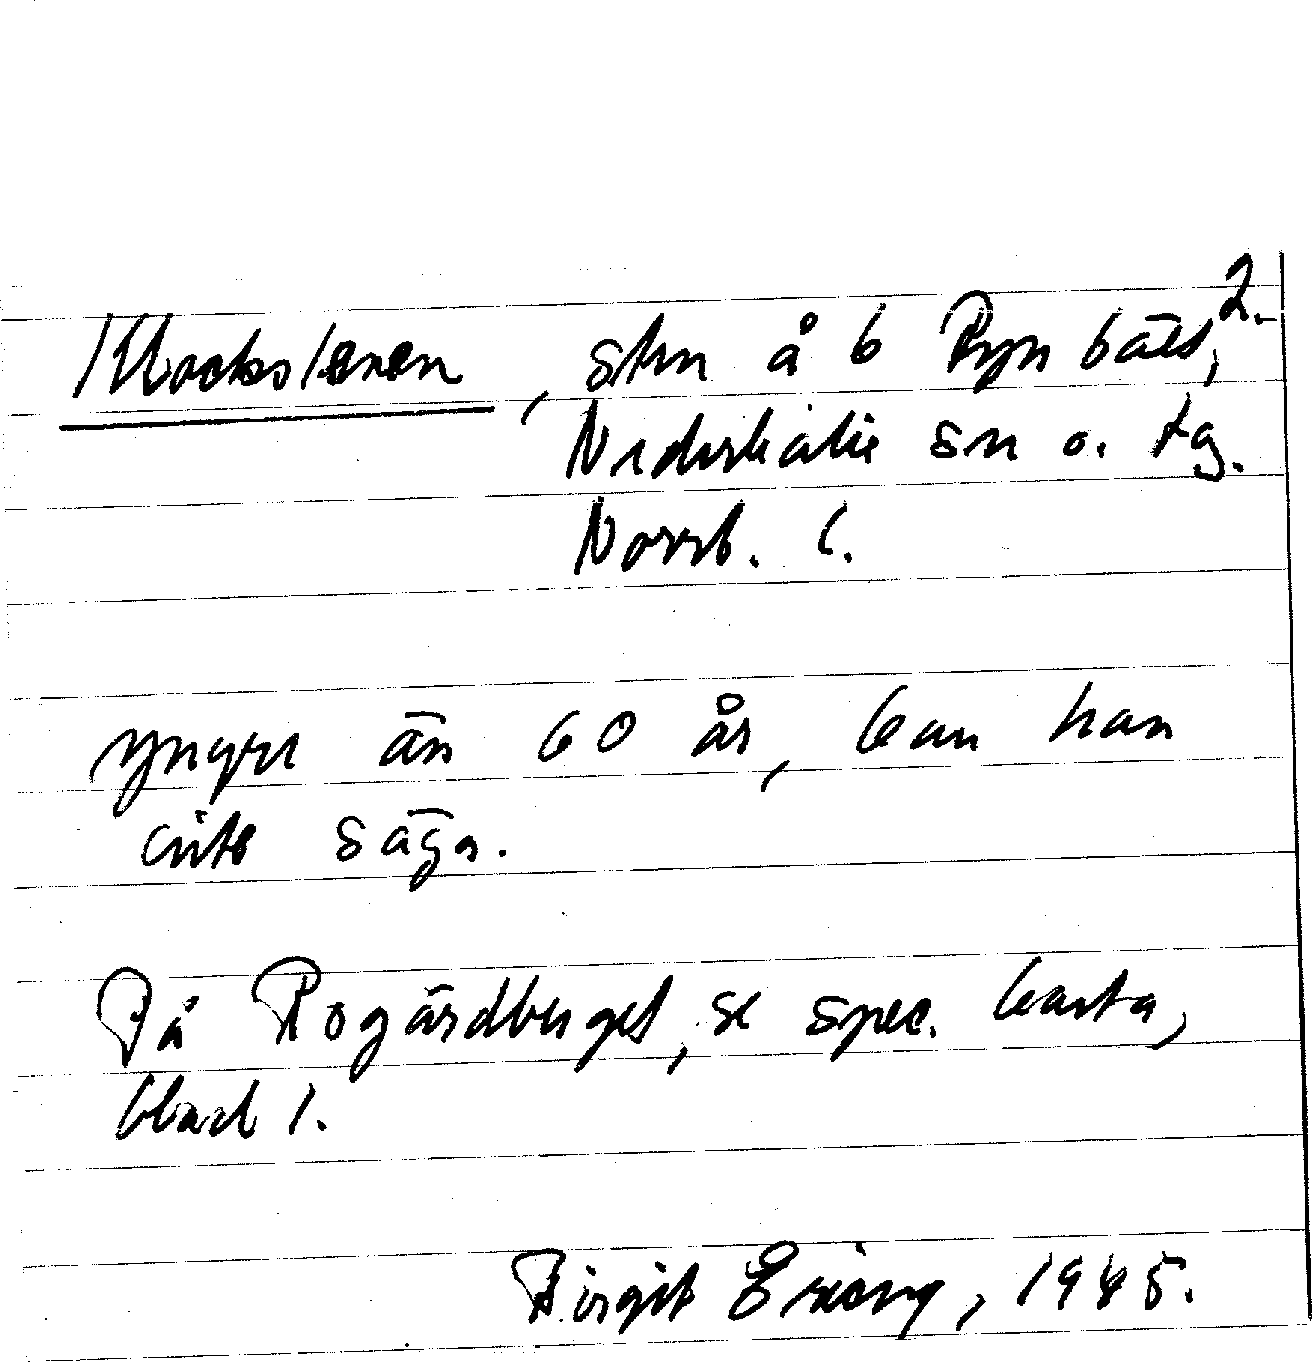 2.
Klockstenen, stn å b Rynbäck,
Nederkalix sn o. tg.
Norrb. l.
yngre än 60 år, kan han
inte säga.
På Rogärdberget, se spec. karta,
blad 1.
Birgit Eriäng, 1945.